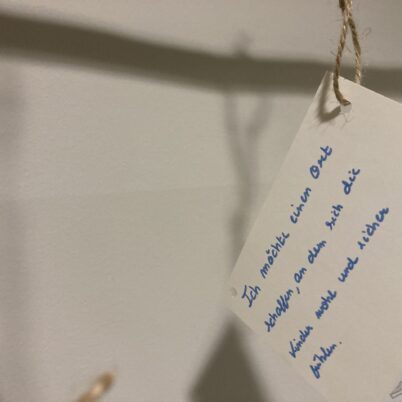 Ich möchte einen Ort
schaffen, an dem sich die
Kinder wohl und sicher
fühlen.